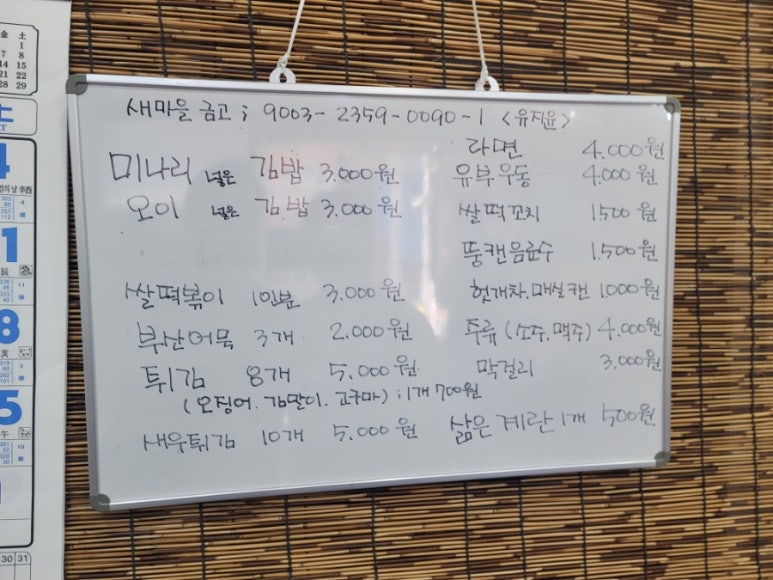 새마을 금고 ; 9003-2359-0090-1 <유지윤>
미나리 넣은 김밥 3.000원
오이 넣은 김.밥 3.000원
쌀떡볶이 1인분 3.000원
부산어묵 3개 2.000원
튀김 8개 5.000원
(오징어.김말이.고구마) ; 1개 700원
새우튀김 10개 5.000원
라면 4.000원
유부우동 4.000원
쌀떡꼬치 1500원
뚱캔음료수 1.500원
헛개차.매실캔 1000원
주류 (소주.맥주) 4.000원
막걸리 3.000원
삶은 계란 1개 500원
金 土
1
7 8
14 15
21 22
28 29
30 31